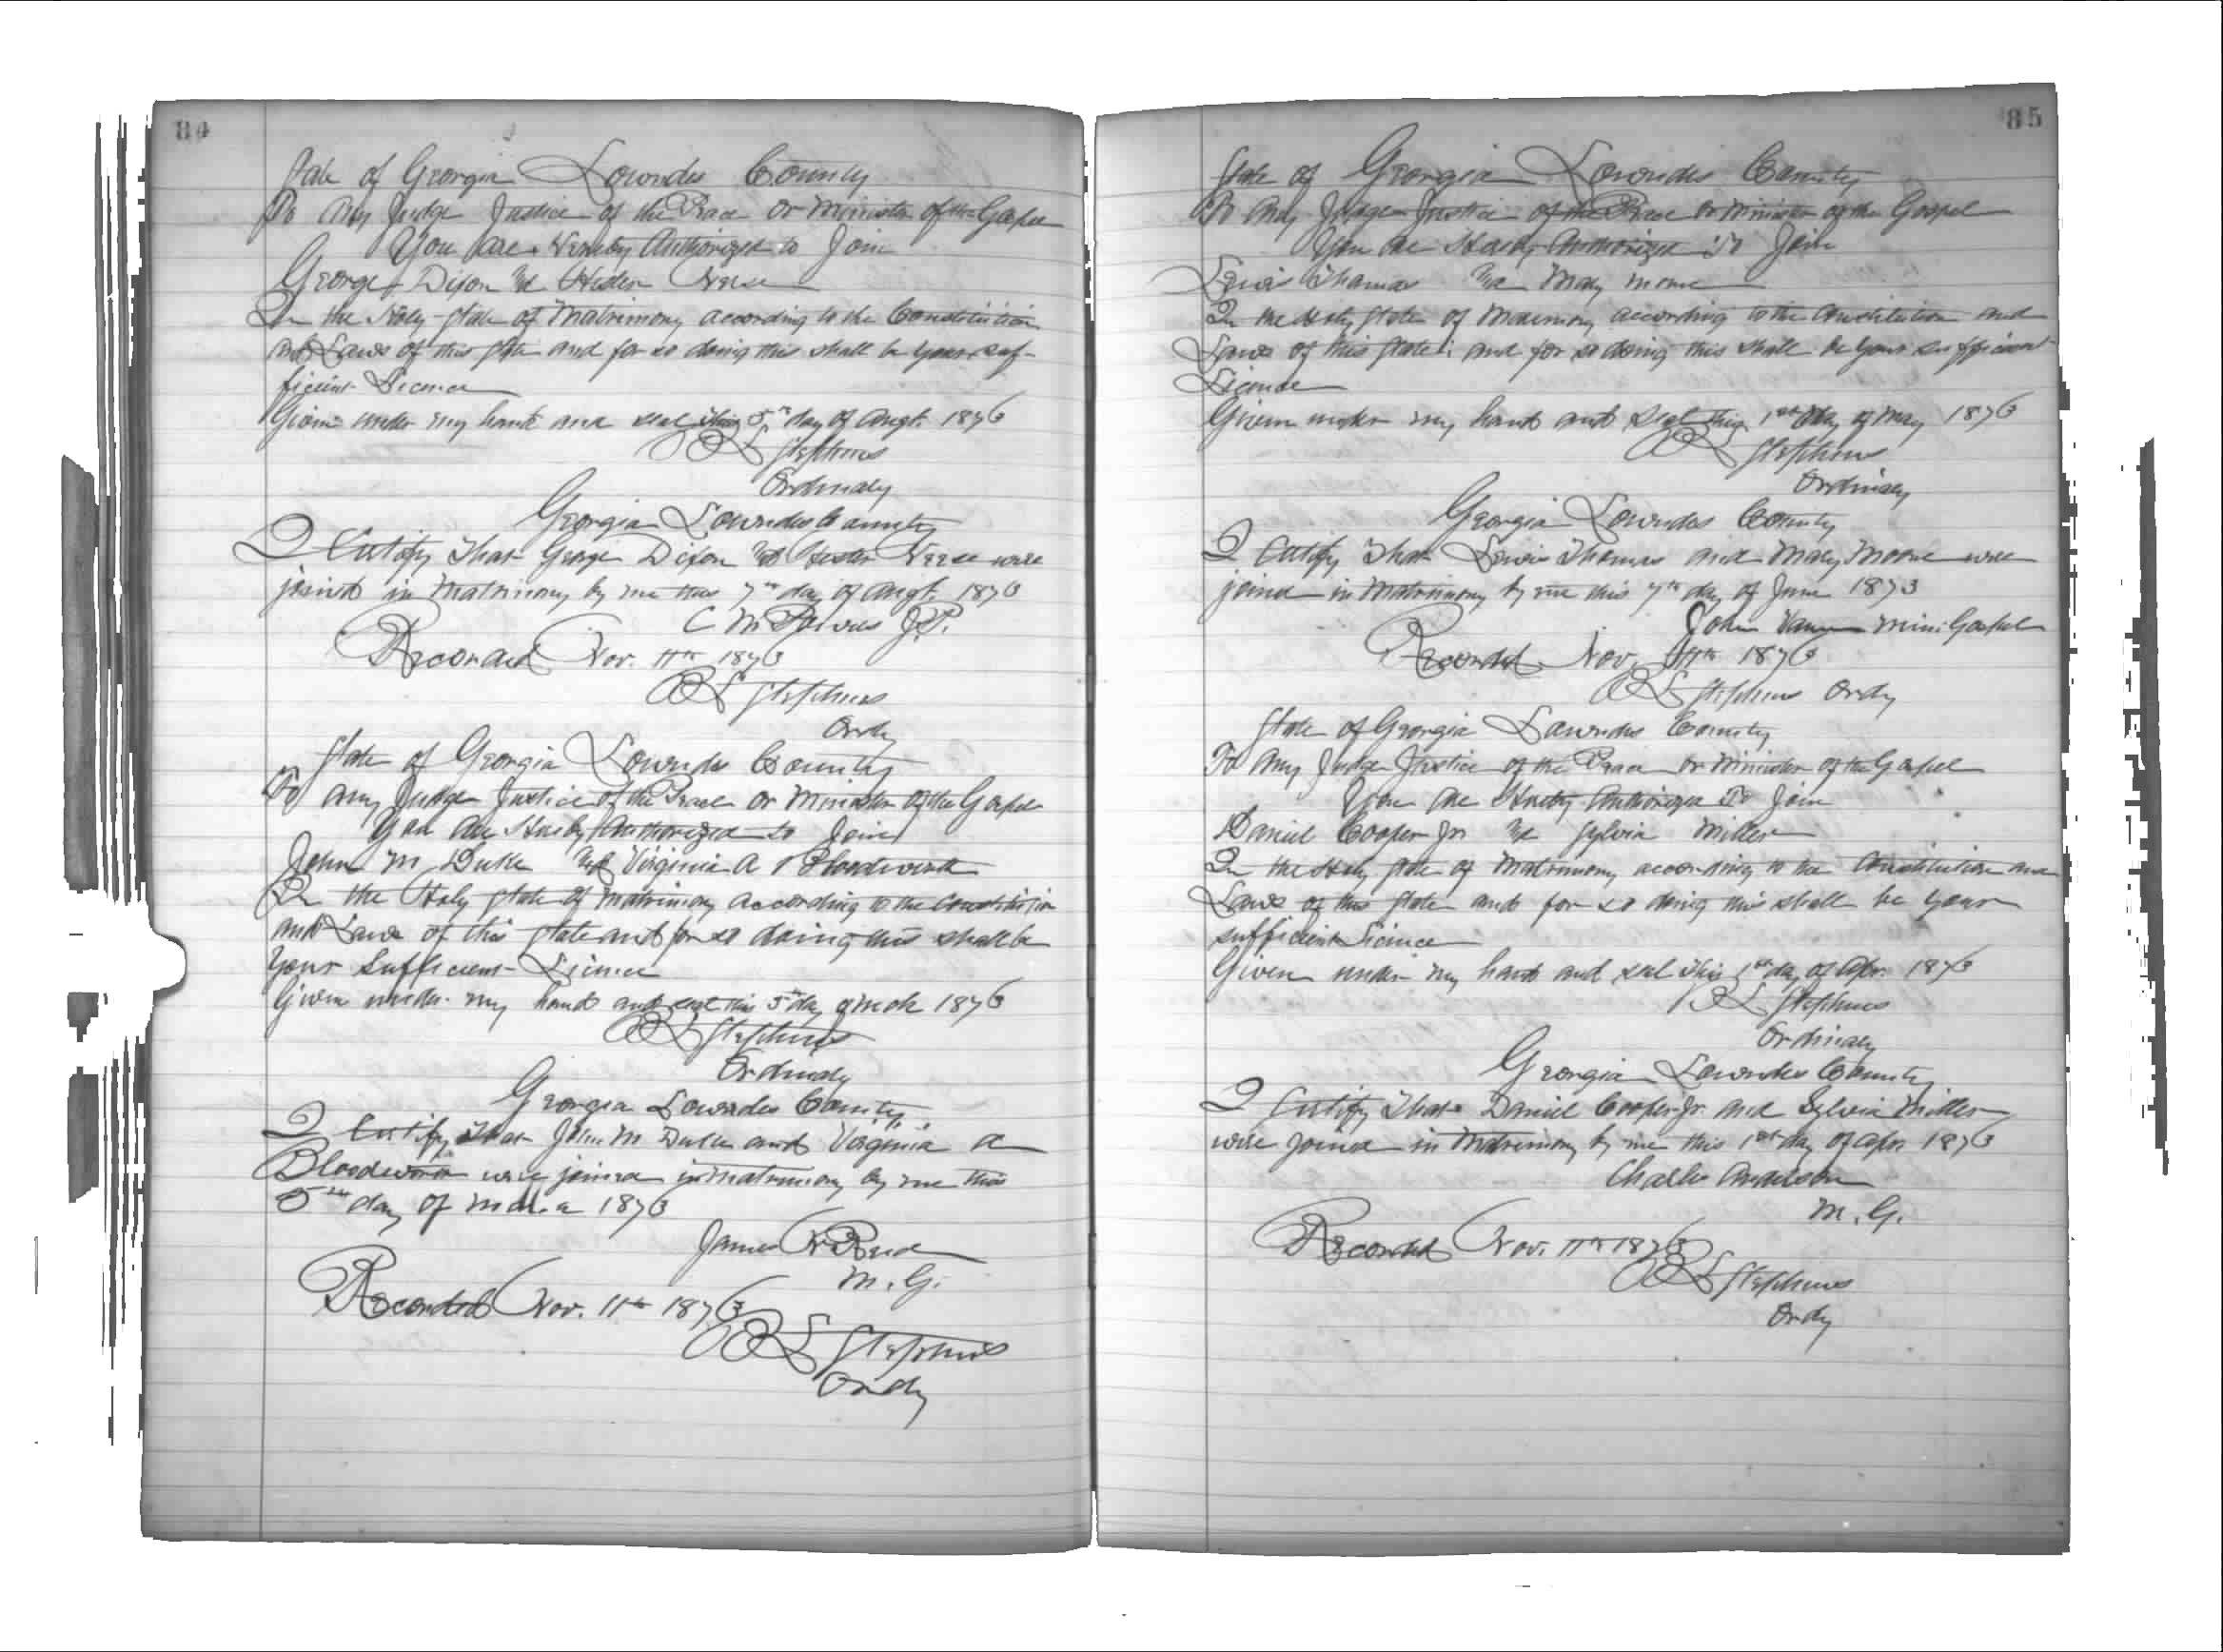 84
State of Georgia Lowndes County
To Any Judge Justice of the Peace or Minister of the Gospel
You are Hereby Authorized to Join
George Dixon & Hester
In the Holy State of Matrimony according to the Constitution
and Laws of this State and for so doing this shall be your suf-
ficient License
Given under my hand and seal this 5th day of Augt. 1876
Stephens
Ordinary
Georgia Lowndes County
I Certify That George Dixon & Hester were
joined in Matrimony by me this 7th day of Augt. 1876
C M J.P.
Recorded Nov. 11th 1876
Stephens
Ordy
State of Georgia Lowndes County
To Any Judge Justice of the Peace or Minister of the Gospel
You are Hereby Authorized to Join
John M Duke & Virginia A Bloodworth
In the Holy State of Matrimony according to the Constitution
and Laws of this State and for so doing this shall be
Your Sufficient License
Given under my hand and seal this 5th day of Mch 1876
Stephens
Ordinary
Georgia Lowndes County
I Certify That John M Duke and Virginia A
Bloodworth were joined in Matrimony by me this
5th day of 1876
James
M. G.
Recorded Nov. 11th 1876
Stephens
Ordy
85
State of Georgia Lowndes County
To Any Judge Justice of the Peace or Minister of the Gospel
You are Hereby Authorized To Join
Lewis Thomas & Mary Moore
In the Holy State of Matrimony according to the Constitution and
Laws of this State and for so doing this shall be your sufficient
License
Given under my hand and Seal this 1st Day of May 1876
Stephens
Ordinary
Georgia Lowndes County
I Certify That Lewis Thomas and Mary Moore were
joined in Matrimony by me this 7th day of June 1873
John Min. Gospel
Recorded Nov. 11th 1876
Stephens Ordy
State of Georgia Lowndes County
To Any Judge Justice of the Peace or Minister of the Gospel
You are Hereby Authorized To Join
Daniel Cooper Jr & Sylvia Miller
In the Holy State of Matrimony according to the Constitution and
Laws of this State and for so doing this shall be your
sufficient License
Given under my hand and seal this 1st day of Apr. 1876
Stephens
Ordinary
Georgia Lowndes County
I Certify That Daniel Cooper Jr. and Sylvia Miller
were joined in Matrimony by me this 1st day of Apr. 1876
Charles Anderson
M. G.
Recorded Nov. 11th 1876
Stephens
Ordy